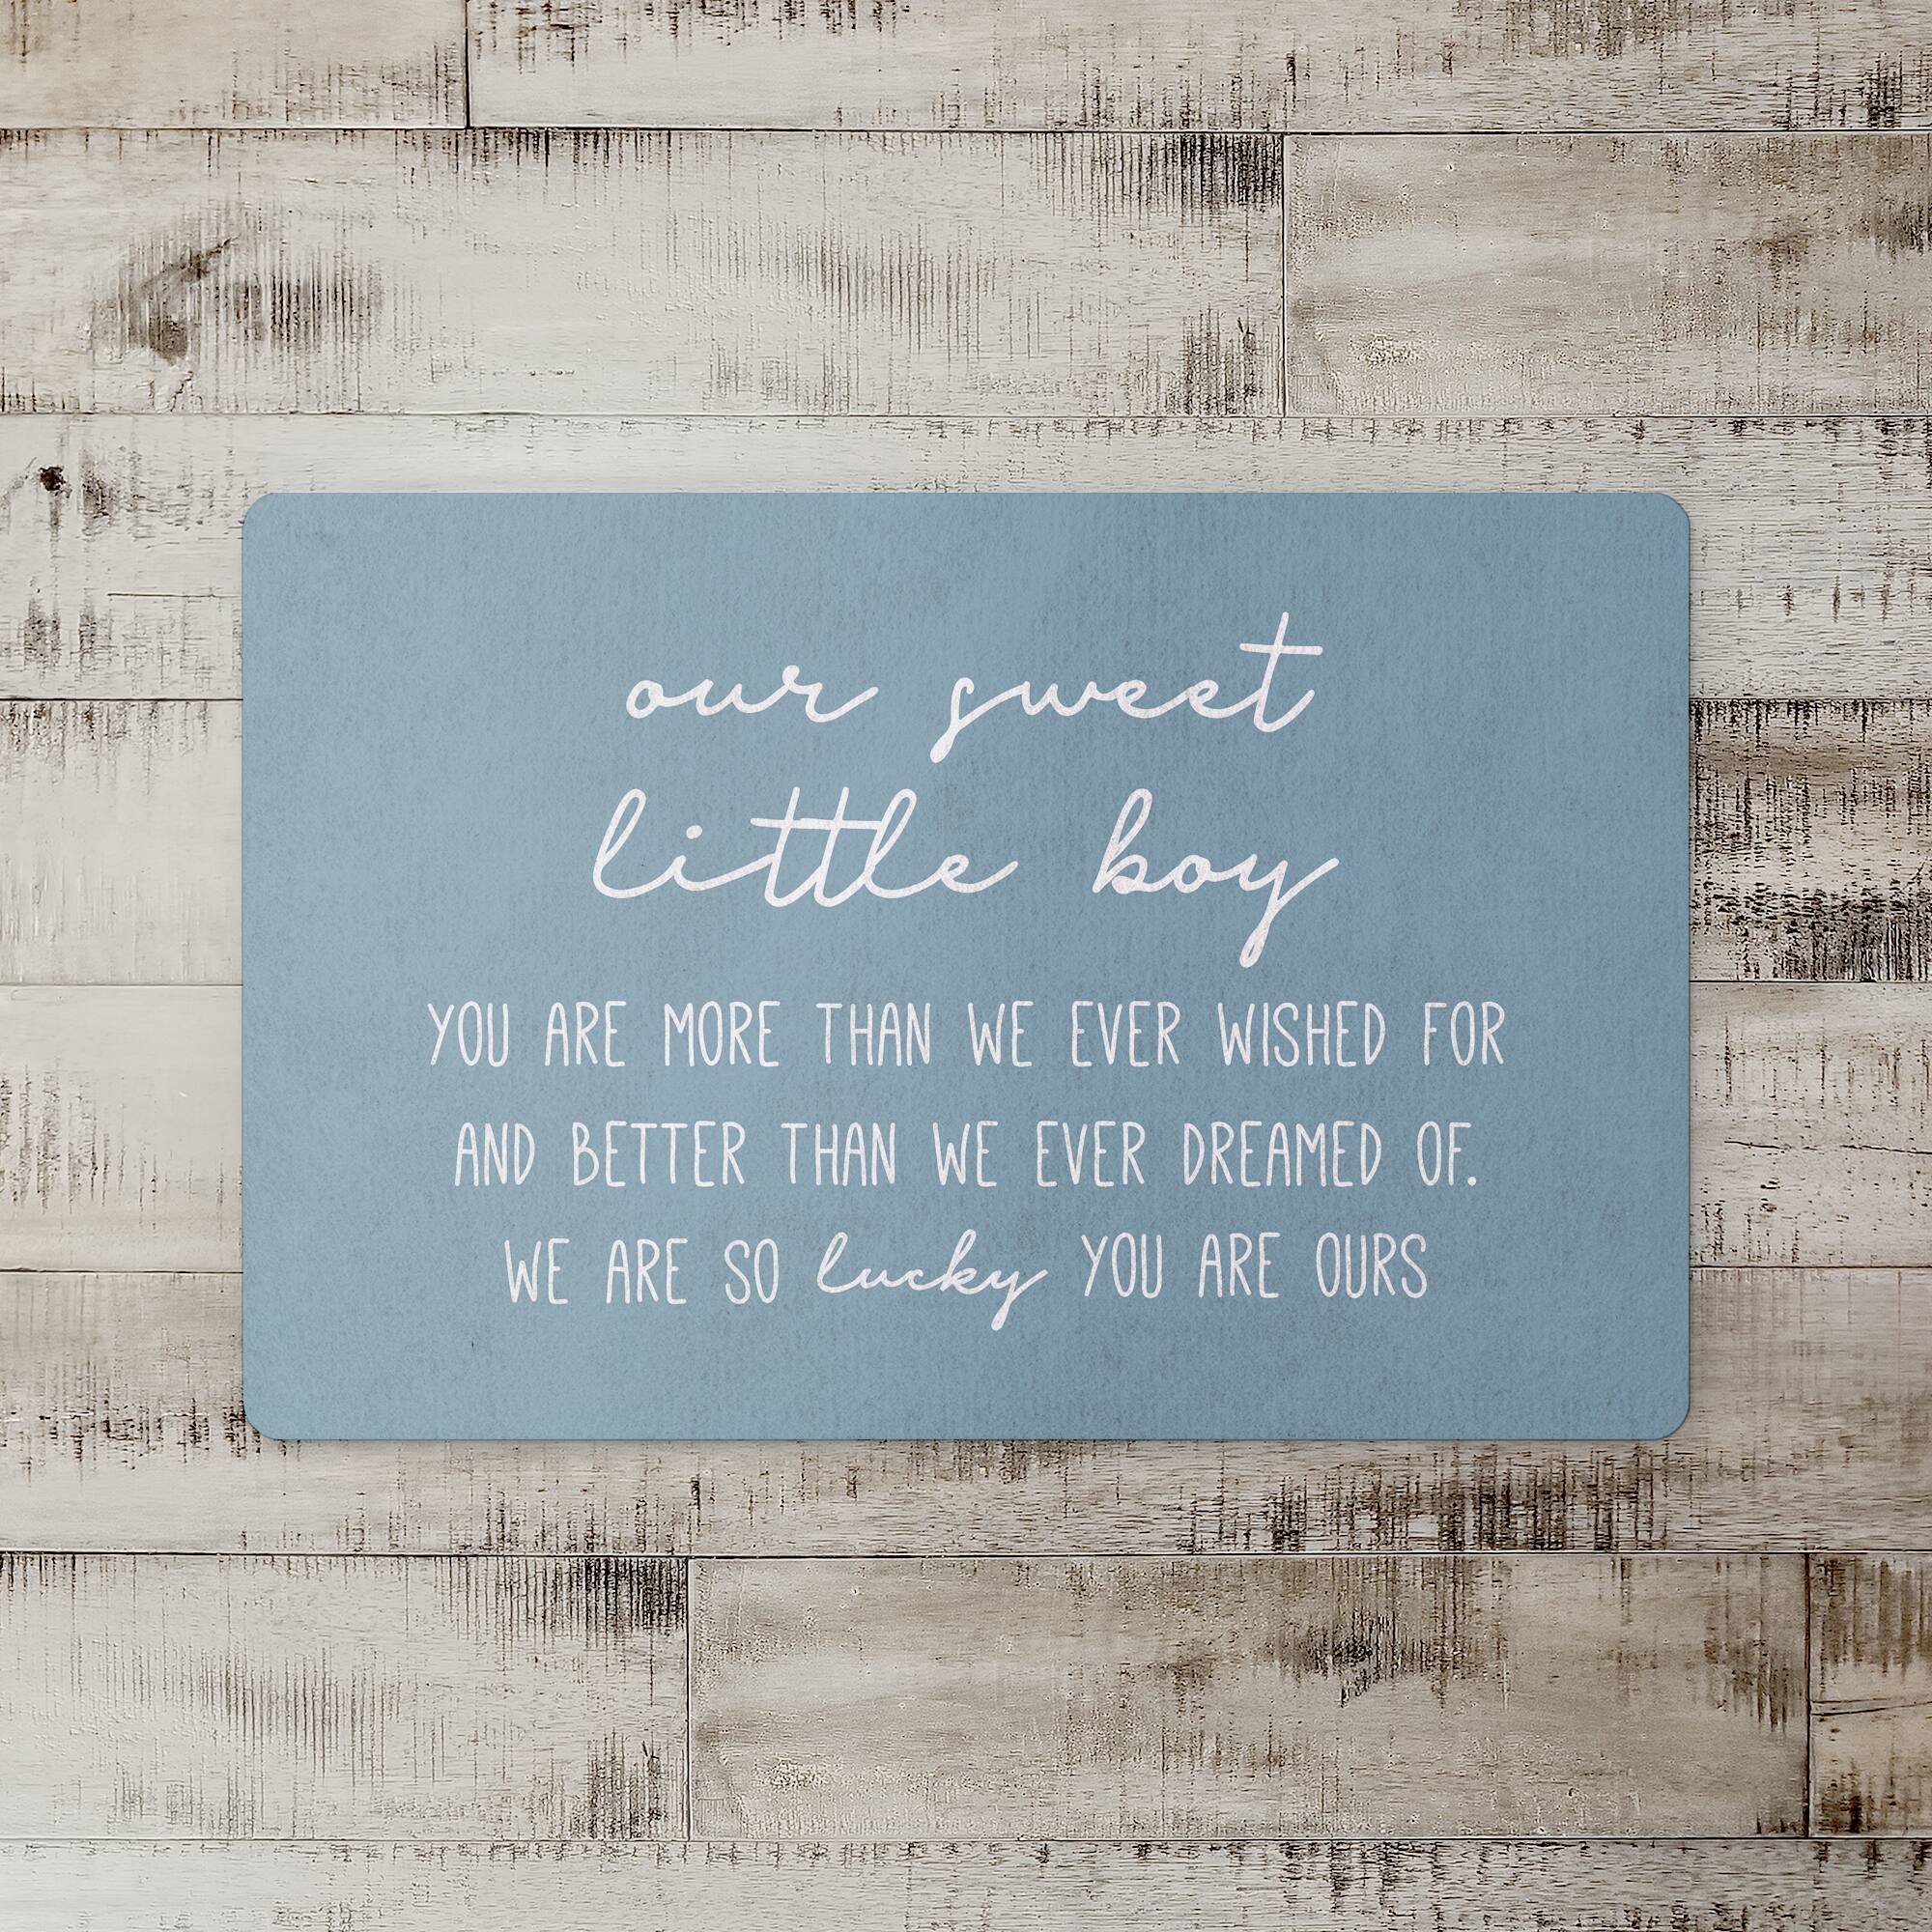 our sweet
little boy
YOU ARE MORE THAN WE EVER WISHED FOR
AND BETTER THAN WE EVER DREAMED OF.
WE ARE SO lucky YOU ARE OURS